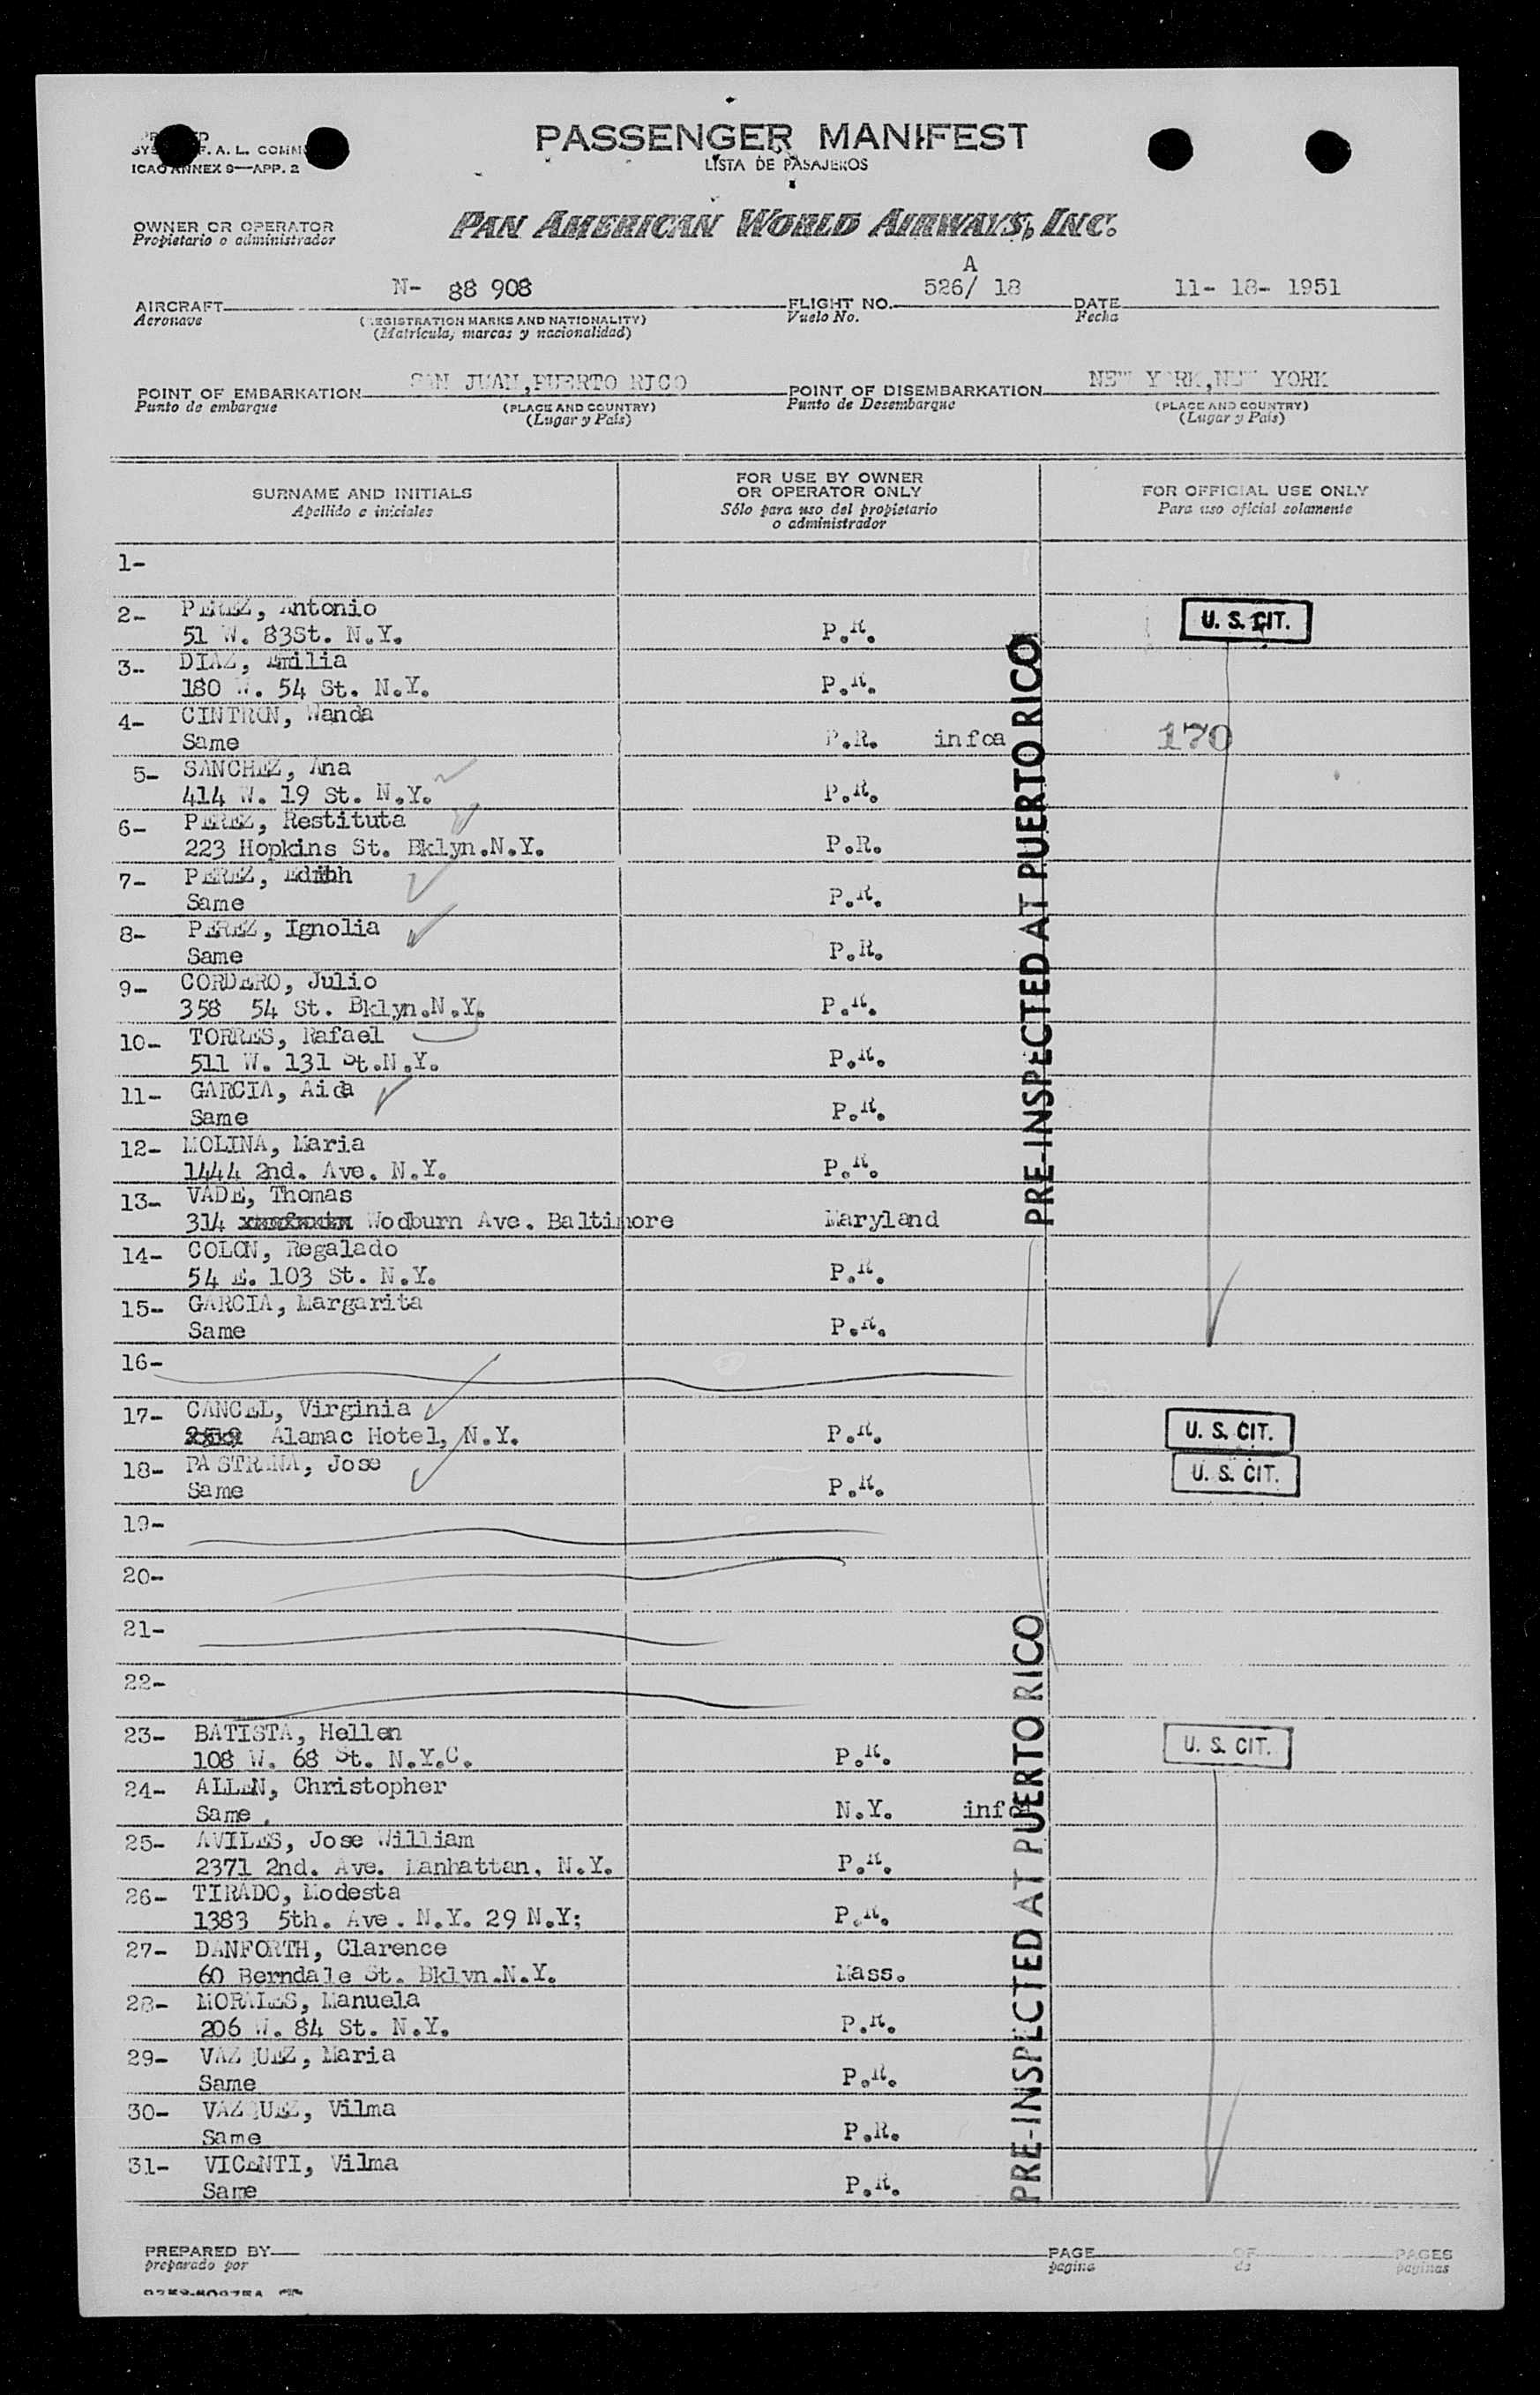 PASSENGER MANIFEST
LISTA DE PASAJEROS
F. A. L. COMM
ICAO ANNEX 9—APP. 2
OWNER OR OPERATOR
Propietario o administrador
PAN AMERICAN WORLD AIRWAYS, INC.
AIRCRAFT N- 88 908
Aeronave
(REGISTRATION MARKS AND NATIONALITY)
(Matrícula, marcas y nacionalidad)
A
FLIGHT NO. 526/ 18
Vuelo No.
DATE 11- 18- 1951
Fecha
POINT OF EMBARKATION SAN JUAN,PUERTO RICO
Punto de embarque
(PLACE AND COUNTRY)
(Lugar y País)
POINT OF DISEMBARKATION NEW YORK,NEW YORK
Punto de Desembarque
(PLACE AND COUNTRY)
(Lugar y País)
SURNAME AND INITIALS
Apellido e iniciales
FOR USE BY OWNER
OR OPERATOR ONLY
Sólo para uso del propietario
o administrador
FOR OFFICIAL USE ONLY
Para uso oficial solamente
1-
2- PEREZ, Antonio
51 W. 83St. N.Y. P.R. U. S. CIT.
3- DIAZ, Emilia
180 W. 54 St. N.Y. P.R.
4- CINTRON, Wanda
Same P.R. infoa 170
5- SANCHEZ, Ana
414 W. 19 St. N.Y. P.R.
6- PEREZ, Restituta
223 Hopkins St. Bklyn.N.Y. P.R.
7- PEREZ,
Same P.R.
8- PEREZ, Ignolia
Same P.R.
9- CORDERO, Julio
358 54 St. Bklyn.N.Y. P.R.
10- TORRES, Rafael
511 W. 131 St.N.Y. P.R.
11- GARCIA, Aida
Same P.R.
12- MOLINA, Maria
1444 2nd. Ave. N.Y. P.R.
13- VADE, Thomas
314 Wodburn Ave. Baltimore Maryland
14- COLON, Regalado
54 E. 103 St. N.Y. P.R.
15- GARCIA, Margarita
Same P.R.
PRE-INSPECTED AT PUERTO RICO
16-
17- CANCEL, Virginia
Alamac Hotel, N.Y. P.R. U. S. CIT.
18- PASTRANA, Jose
Same P.R. U. S. CIT.
19-
20-
21-
22-
23- BATISTA, Hellen
108 W. 68 St. N.Y.C. P.R. U. S. CIT.
24- ALLEN, Christopher
Same N.Y.
25- AVILES, Jose William
2371 2nd. Ave. Manhattan, N.Y. P.R.
26- TIRADO, Modesta
1383 5th. Ave. N.Y. 29 N.Y; P.R.
27- DANFORTH, Clarence
60 Berndale St. Bklyn.N.Y. Mass.
28- MORALES, Manuela
206 W. 84 St. N.Y. P.R.
29- VAZQUEZ, Maria
Same P.R.
30- VAZQUEZ, Vilma
Same P.R.
31- VICENTI, Vilma
Same P.R.
PRE-INSPECTED AT PUERTO RICO
PREPARED BY
preparado por
PAGE OF PAGES
pagina de paginas